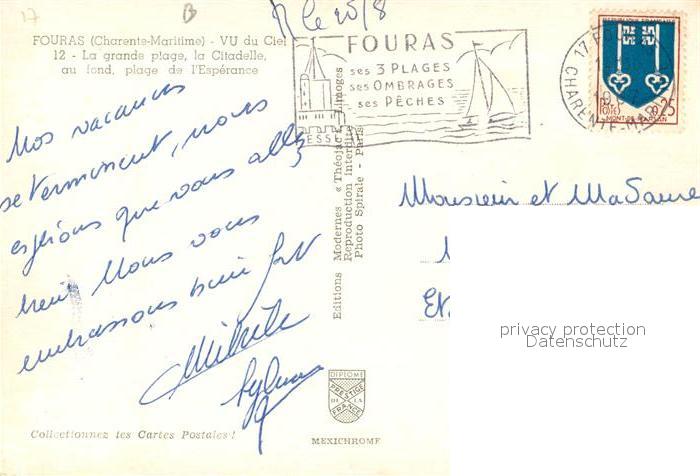 17
B
le 20/8
FOURAS (Charente-Maritime) - VU du Ciel
12 - La grande plage, la Citadelle,
au fond, plage de l'Espérance
FOURAS
ses 3 PLAGES
ses OMBRAGES
ses PÊCHES
17 FO
CHARENTE-M
REPUBLIQUE FRANCAISE
POSTES
0,25
MONT-DE-MARSAN
Nos vacances
se terminent, nous
espérons que vous allez
bien Nous vous
embrassons bien fort
Sylvie
Editions Modernes « Théojac » Limoges
Reproduction Interdite
Photo Spirale - Paris
Monsieur et Madame
Et
privacy protection
Datenschutz
DIPLOME
PRESTIGE
DE LA
FRANCE
Collectionnez les Cartes Postales !
MEXICHROME